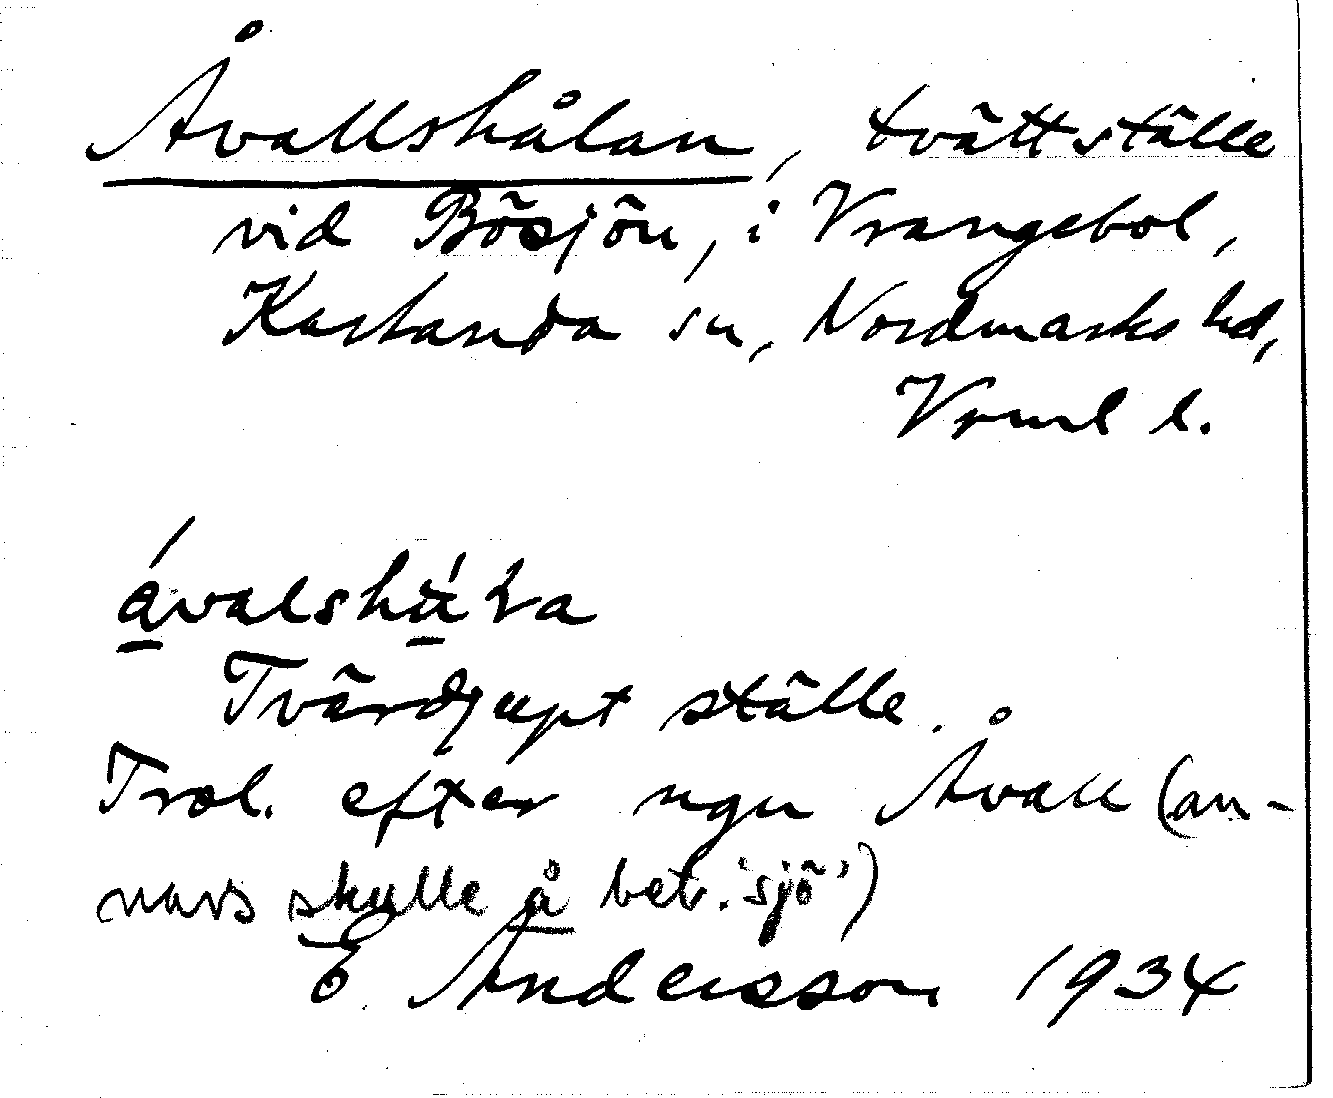 Åvallshålan, tvättställe
vid Bösjön, i Vrangebol,
Karlanda sn, Nordmarks hd,
Vrml l.
Tvärdjupt ställe.
Trol. efter ngn Åvall (an-
nars skulle å betr. 'sjö')
E. Andersson 1934